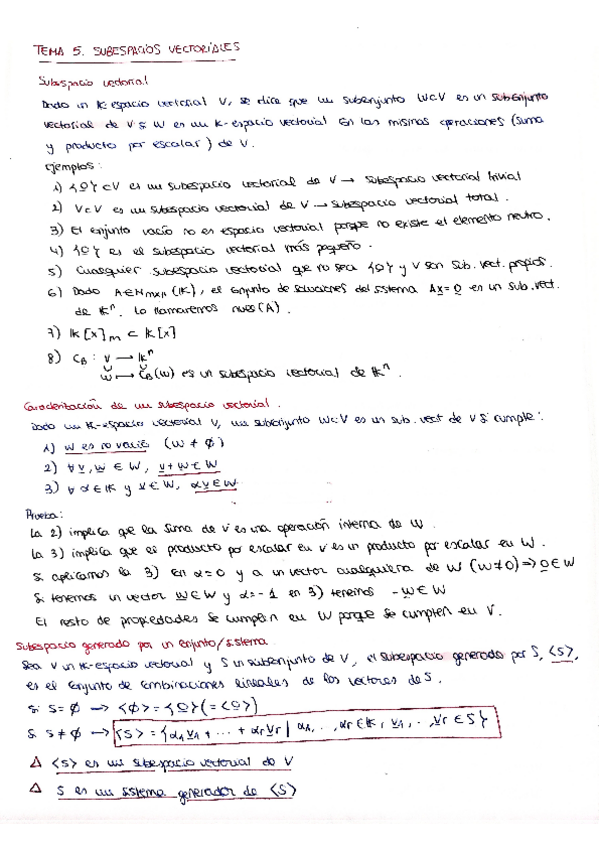 TEMA 5. SUBESPACIOS VECTORIALES
Subespacio vectorial
Dado un K-espacio vectorial V, se dice que un subconjunto W⊂V es un subconjunto
vectorial de V si W es un K-espacio vectorial con las mismas operaciones (suma
y producto por escalar) de V.
Ejemplos:
1) {0} ⊂ V es un subespacio vectorial de V → subespacio vectorial trivial
2) V⊂V es un subespacio vectorial de V → subespacio vectorial total.
3) El conjunto vacío no es espacio vectorial porque no existe el elemento neutro.
4) {0} es el subespacio vectorial más pequeño.
5) Cualquier subespacio vectorial que no sea {0} y V son sub. vect. propios.
6) Dado A∈Mmxn(K), el conjunto de soluciones del sistema Ax=0 es un sub. vect.
de Kⁿ. Lo llamaremos nuc(A).
7) K[x]m ⊂ K[x]
8) CB : V → Kⁿ
W → CB(W) es un subespacio vectorial de Kⁿ.
Caracterización de un subespacio vectorial.
Dado un K-espacio vectorial V, un subconjunto W⊂V es un sub. vect de V si cumple:
1) W es no vacío (W ≠ ∅)
2) ∀ v, w ∈ W, v+w ∈ W
3) ∀ α∈K y v∈W, αv∈W
Prueba:
La 2) implica que la suma de V es una operación interna de W.
La 3) implica que el producto por escalar en V es un producto por escalar en W.
Si aplicamos la 3) con α=0 y a un vector cualquiera de W (W≠0) => 0∈W
Si tenemos un vector w∈W y α=-1 en 3) tenemos -w∈W
El resto de propiedades se cumplen en W porque se cumplen en V.
Subespacio generado por un conjunto/sistema
Sea V un K-espacio vectorial y S un subconjunto de V, el subespacio generado por S, <S>,
es el conjunto de combinaciones lineales de los vectores de S.
Si S=∅ → <∅> = {0} (= <0>)
Si S≠∅ → <S> = {α1v1 + ... + αrvr | α1, ..., αr∈K, v1, ..., vr∈S}
Δ <S> es un subespacio vectorial de V
Δ S es un sistema generador de <S>